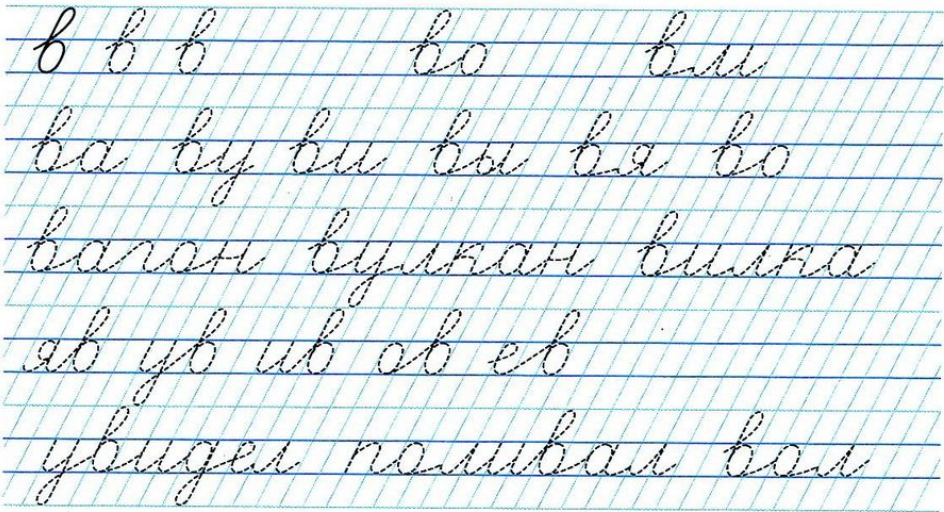 в в в во вл
ва ву ви вы вя во
вагон вулкан вилка
яв ув ив ов ев
увидел поливал вол